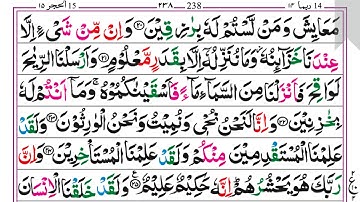 ١٥ الحجر ١٥ ٢٣٨ 238 ربما ١٤ 14
مَعَايِشَ وَمَنْ لَّسْتُمْ لَهٗ بِرٰزِقِيْنَ ﴿٢٠﴾ وَاِنْ مِّنْ شَىْءٍ اِلَّا
عِنْدَنَا خَزَآئِنُهٗ وَمَا نُنَزِّلُهٗٓ اِلَّا بِقَدَرٍ مَّعْلُوْمٍ ﴿٢١﴾ وَاَرْسَلْنَا الرِّيٰحَ
لَوَاقِحَ فَاَنْزَلْنَا مِنَ السَّمَآءِ مَآءً فَاَسْقَيْنٰكُمُوْهُ ۚ وَمَآ اَنْتُمْ لَهٗ
بِخٰزِنِيْنَ ﴿٢٢﴾ وَاِنَّا لَنَحْنُ نُحْىٖ وَنُمِيْتُ وَنَحْنُ الْوٰرِثُوْنَ ﴿٢٣﴾ وَلَقَدْ
عَلِمْنَا الْمُسْتَقْدِمِيْنَ مِنْكُمْ وَلَقَدْ عَلِمْنَا الْمُسْتَاْخِرِيْنَ ﴿٢٤﴾ وَاِنَّ
رَبَّكَ هُوَ يَحْشُرُهُمْ ؕ اِنَّهٗ حَكِيْمٌ عَلِيْمٌ ﴿٢٥﴾ وَلَقَدْ خَلَقْنَا الْاِنْسَانَ